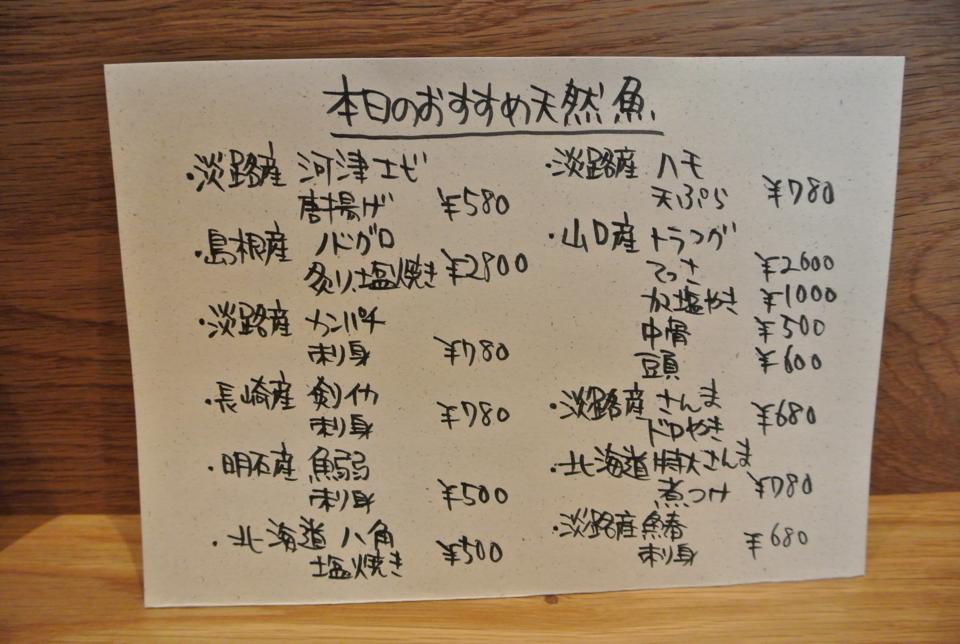 本日のおすすめ天然魚
・淡路産 河津エビ
唐揚げ ¥580
・島根産 ノドグロ
炙り、塩焼き ¥2800
・淡路産 カンパチ
刺身 ¥780
・長崎産 剣イカ
刺身 ¥780
・明石産 鰯
刺身 ¥500
・北海道 八角
塩焼き ¥500
・淡路産 ハモ
天ぷら ¥780
・山口産 トラフグ
てっさ ¥2600
塩やき ¥1000
中骨 ¥500
頭 ¥600
・淡路産 さんま
ドロやき ¥680
・北海道 特大さんま
煮つけ ¥780
・淡路産 鰆
刺身 ¥680